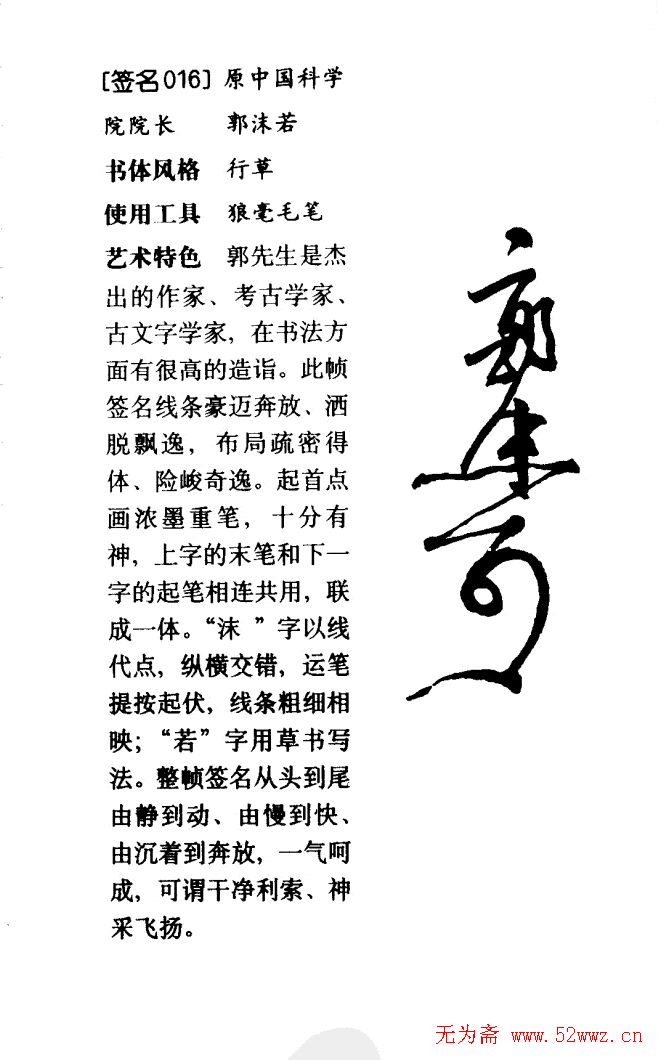 [签名016] 原中国科学
院院长 郭沫若
书体风格 行草
使用工具 狼毫毛笔
艺术特色 郭先生是杰
出的作家、考古学家、
古文字学家，在书法方
面有很高的造诣。此帧
签名线条豪迈奔放、洒
脱飘逸，布局疏密得
体、险峻奇逸。起首点
画浓墨重笔，十分有
神，上字的末笔和下一
字的起笔相连共用，联
成一体。“沫 ”字以线
代点，纵横交错，运笔
提按起伏，线条粗细相
映；“若”字用草书写
法。整帧签名从头到尾
由静到动、由慢到快、
由沉着到奔放，一气呵
成，可谓干净利索、神
采飞扬。
郭沫若
无为斋 www.52wwz.cn